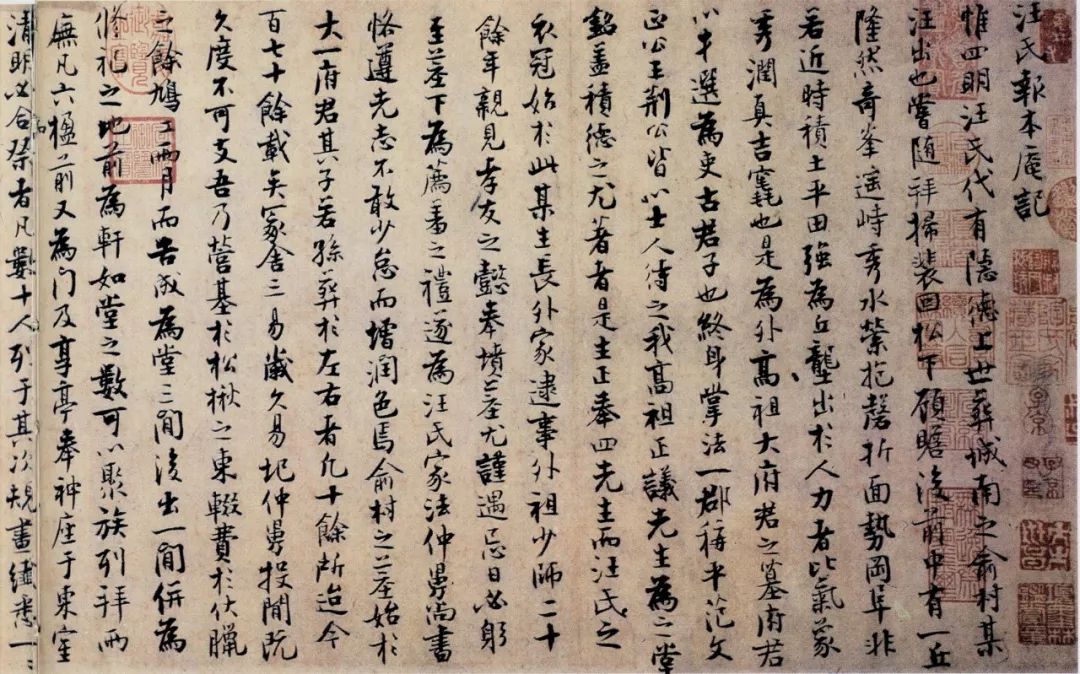 汪氏報本庵記
惟四明汪氏代有隱德上世葬城南之俞村某
汪出也嘗随拜掃裴回松下顧瞻後前中有一丘
隆然奇峯遥峙秀水縈抱磬折面勢岡阜非
若近時積土平田強為丘壟出於人力者比氣象
秀潤真吉窀也是為外高祖大府君之墓府君
以才選為吏古君子也終身掌法一郡稱平范文
正公王荆公皆以士人待之我高祖正議先生為之堂
銘盖積德之尤著者是生正奉四先生而汪氏之
衣冠始於此某生長外家逮事外祖少師二十
餘年親見孝友之懿奉墳墓尤謹遇忌日必躬
至墓下為薦羞之禮遂為汪氏家法仲舅尚書
恪遵先志不敢少怠而増潤色焉俞村之墓始於
大一府君其子若孫葬於左右者凡十餘所迨今
百七十餘載矣冢舍三易歲久易圮仲舅投閒既
久度不可支吾乃營基於松楸之東輟費於伏臘
之餘鳩工兩月而告成為堂三間後出一間併為
脩祀之地前為軒如堂之數可以聚族列拜兩
廡凡六楹前又為門及享亭奉神座于東室
清明必合祭者凡數十人列于其次規畫纎悉一一